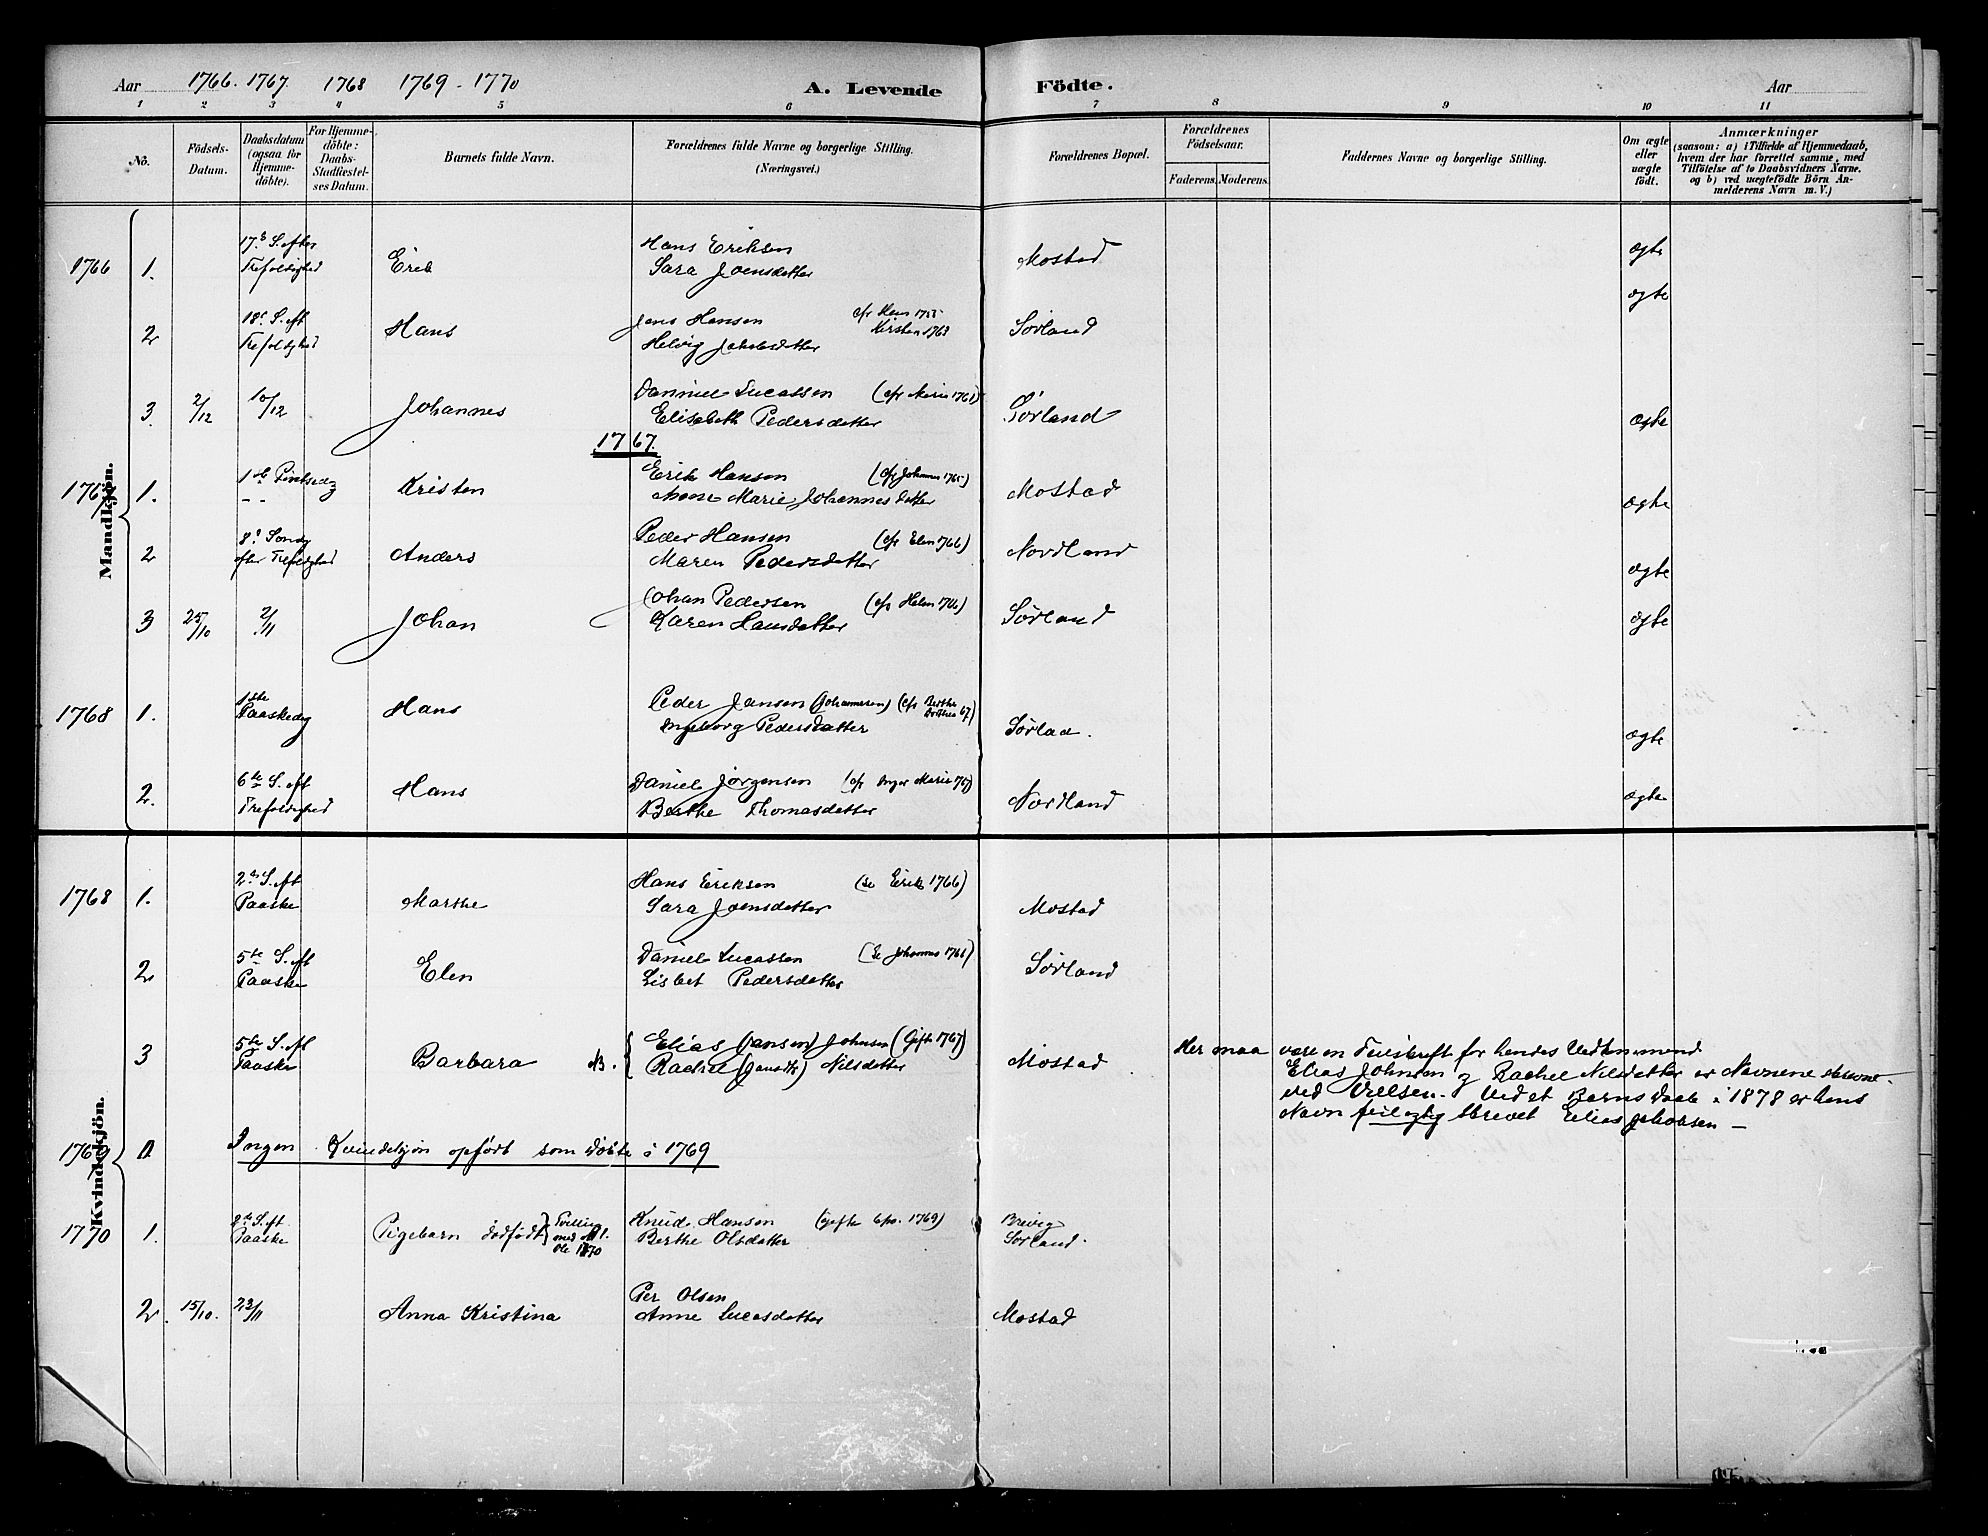 Aar 1766. 1767. 1768 1769 - 1770 A. Levende Födte. Aar
1 2 3 4 5 6 7 8 9 10 11
No.
Födsels-
Datum.
Daabsdatum
(ogsaa for
Hjemme-
döbte).
For Hjemme-
döbte:
Daabs-
Stadfæstel-
ses Datum.
Barnets fulde Navn.
Forældrenes fulde Navne og borgerlige Stilling.
(Næringsvei.)
Forældrenes Bopæl.
Forældrenes
Födselsaar.
Faderens. Moderens.
Faddernes Navne og borgerlige Stilling.
Om ægte
eller
uægte
födt.
Anmærkninger
(saasom: a) i Tilfælde af Hjemmedaab,
hvem der har forrettet samme, med
Tilföielse af to Daabsvidners Navne,
og b) ved uægtefödte Börn An-
melderens Navn m. V.)
Mandkjön.
1766 1. 17de S. efter Trefoldighed Erik Hans Eriksen Mostad ægte
Sara Joensdatter
2 18de S. eft Trefoldighed Hans Jens Hansen Sörland ægte
cfr Hans 1755
Kirsten 1763
Helvig Jakobsdatter
3. 2/12 10/12 Johannes Danniel Lucassen (cfr Marie 1761) Sörland ægte
Elisabeth Pedersdatter
1767.
1767 1. 1ste Pintsedag Kristen Erik Hansen (cfr Johannes 1765) Mostad ægte
- - Anne Marie Johannesdatter
2 8de Sondg efter Trefoldighed Anders Peder Hansen (cfr Elen 1766) Nordland ægte
Maren Pedersdatter
3 25/10 2/11 Johan Johan Pedersen (cfr Helen 1766) Sörland ægte
Karen Hansdatter
1768 1. 1ste Paaskedag Hans Peder Jansen (Johannesen) (cfr Berthe Dorthea 67) Sörlad. ægte
Ingeborg Pedersdatter
2. 6te S. eft Trefoldighed Hans Daniel Jörgensen (cfr Inger Marie 767) Nordland ægte
Berthe Thomasdatter
Kvindekjön.
1768 1. 2den S. eft Paaske Marthe Hans Eriksen (se Erik 1766) Mostad
Sara Joensdatter
2 5te S. eft Paaske Elen Daniel Lucassen (se Johannes 1766) Sörland
Lisbet Pedersdatter
3 5te S. eft Paaske Barbara NB. Elias (Jansen) Johnsen (Gift 1767) Mostad
Rachel (Jansdtr) Nilsdatter
Her maa være en Feilskrift for hendes Vedkommend
Elias Johnsen og Rachel Nilsdatter er Navnene skrevne
ved Vielsen. Ved et Barns Daab i 1878 er hans
Navn feilagtig skrevet Elias Jakobsen -
1769 0 Ingen Kvindekjön opfört som Döbte i 1769
1770 1. 2den S. eft Paaske Pigebarn dödfödt Tvilling med No 1. Ole 1770 Knud Hansen (gifte 6/10. 1769) Brevig
Berthe Olsdatter Sorland.
2. 15/10. 23/11 Anna Kristina Per Olsen Mostad
Anne Lucasdatter